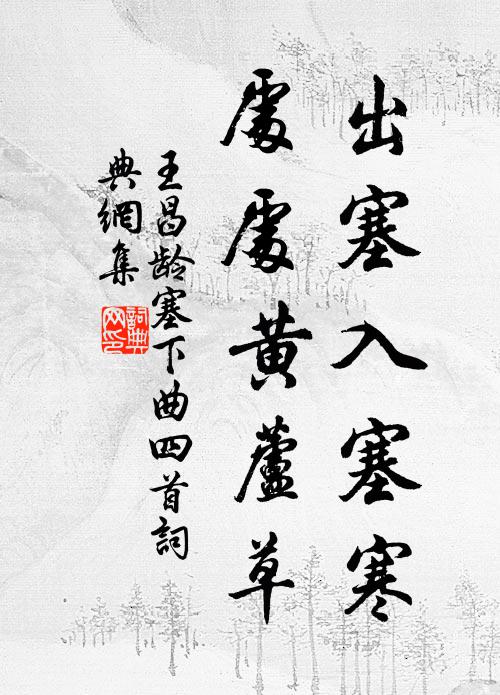 出塞入塞寒
處處黃蘆草
王昌齡塞下曲四首詞
典網集
詞典
网印